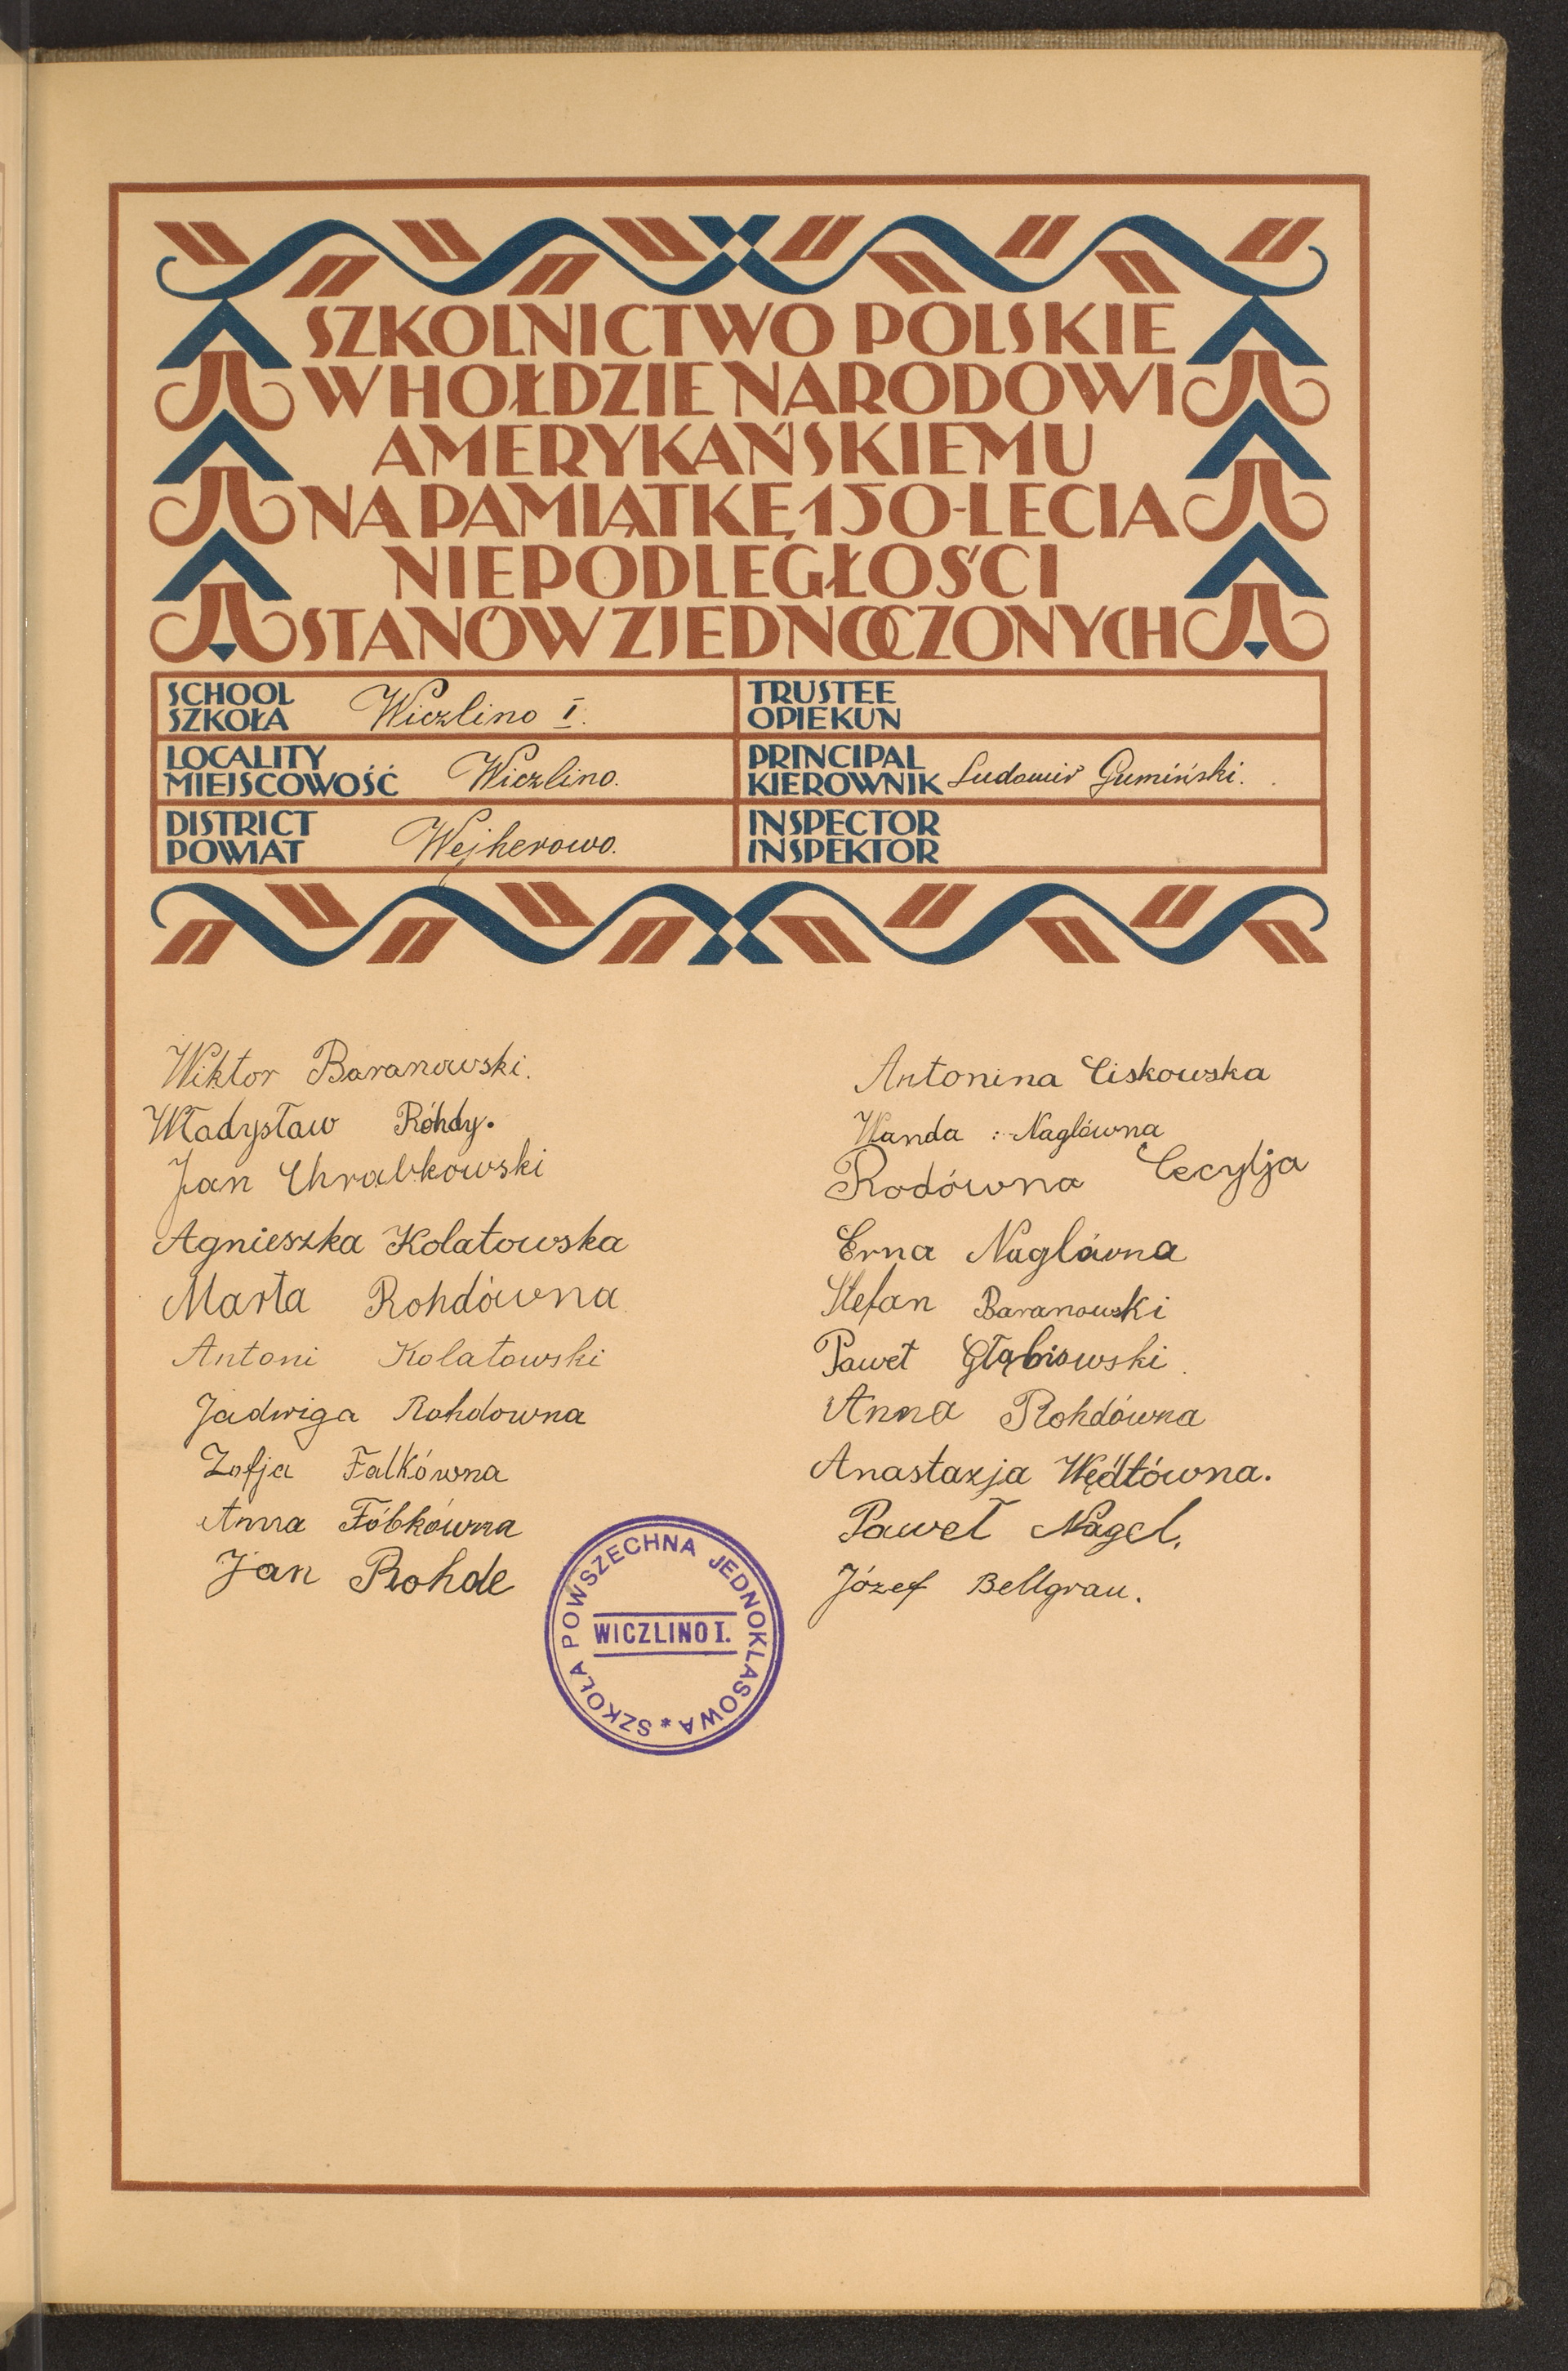 SZKOLNICTWO POLSKIE
W HOŁDZIE NARODOWI
AMERYKAŃSKIEMU
NA PAMIĄTKĘ 150-LECIA
NIEPODLEGŁOŚCI
STANÓW ZJEDNOCZONYCH
SCHOOL
SZKOŁA Wiczlino I.
TRUSTEE
OPIEKUN
LOCALITY
MIEJSCOWOŚĆ Wiczlino.
PRINCIPAL
KIEROWNIK Ludomir Gumiński.
DISTRICT
POWIAT Wejherowo.
INSPECTOR
INSPEKTOR
Wiktor Baranowski.
Władysław Róhdy.
Jan Chrabkowski
Agnieszka Kolatowska
Marta Rohdówna
Antoni Kolatowski
Jadwiga Rohdowna
Zofja Falkówna
Anna Fóbkówna
Jan Rohde
Antonina Ciskowska
Wanda Naglówna
Rodówna Cecylja
Erna Naglówna
Stefan Baranowski
Paweł Głąbiowski
Anna Rohdówna
Anastazja Wędtówna.
Paweł Nagel.
Józef Bellgrau.
SZKOŁA POWSZECHNA JEDNOKLASOWA *
WICZLINO I.